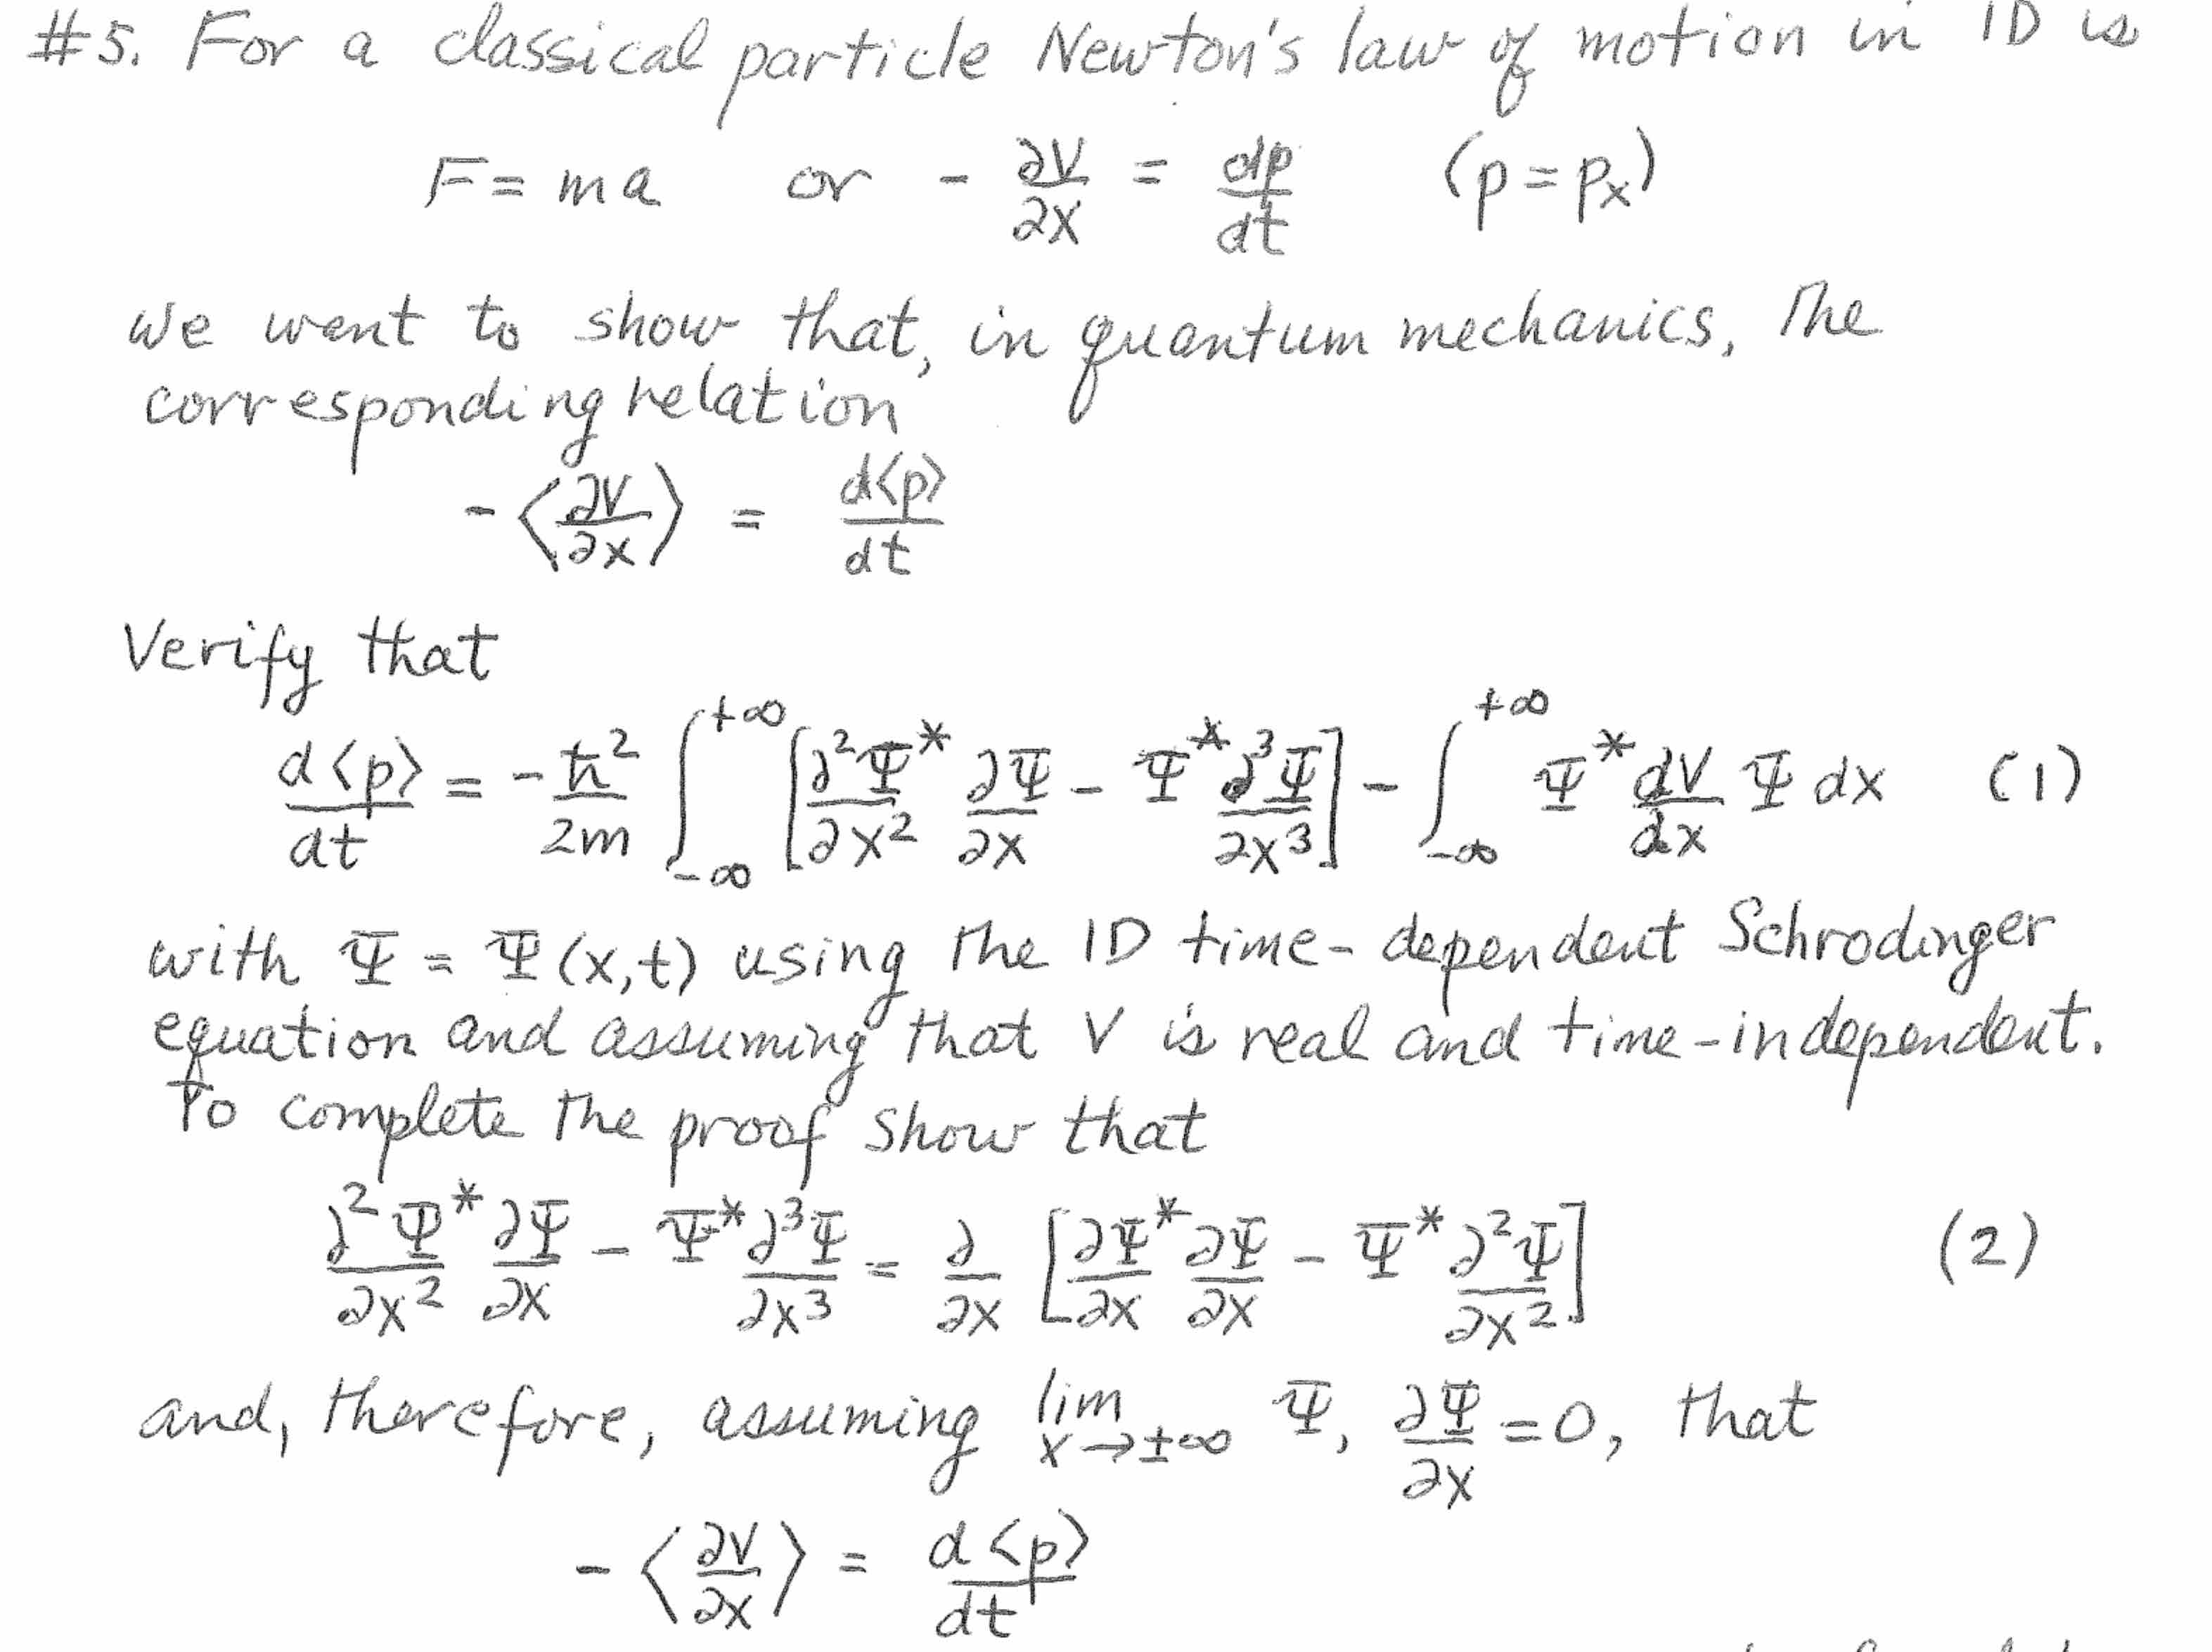 #5. For a classical particle Newton's law of motion in 1D is
F = ma or - ∂V/∂x = dp/dt (p = pₓ)
we want to show that, in quantum mechanics, the
corresponding relation
- ⟨∂V/∂x⟩ = d⟨p⟩/dt
Verify that
d⟨p⟩/dt = - ħ²/2m ∫_{-∞}^{+∞} [∂²Ψ*/∂x² ∂Ψ/∂x - Ψ* ∂³Ψ/∂x³] - ∫_{-∞}^{+∞} Ψ* dV/dx Ψ dx (1)
with Ψ = Ψ(x,t) using the 1D time-dependent Schrodinger
equation and assuming that V is real and time-independent.
To complete the proof show that
∂²Ψ*/∂x² ∂Ψ/∂x - Ψ* ∂³Ψ/∂x³ = ∂/∂x [∂Ψ*/∂x ∂Ψ/∂x - Ψ* ∂²Ψ/∂x²] (2)
and, therefore, assuming lim_{x→±∞} Ψ, ∂Ψ/∂x = 0, that
- ⟨∂V/∂x⟩ = d⟨p⟩/dt